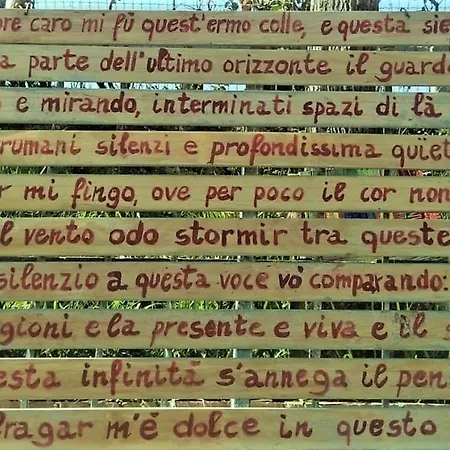 re caro mi fù quest'ermo colle, e questa sie
a parte dell'ultimo orizzonte il guard
o e mirando, interminati spazi di là
rumani silenzi e profondissima quïet
r mi fingo, ove per poco il cor non
l vento odo stormir tra queste
silenzio a questa voce vo comparando:
gioni e la presente e viva e il s
esta infinità s'annega il pen
fragar m'è dolce in questo